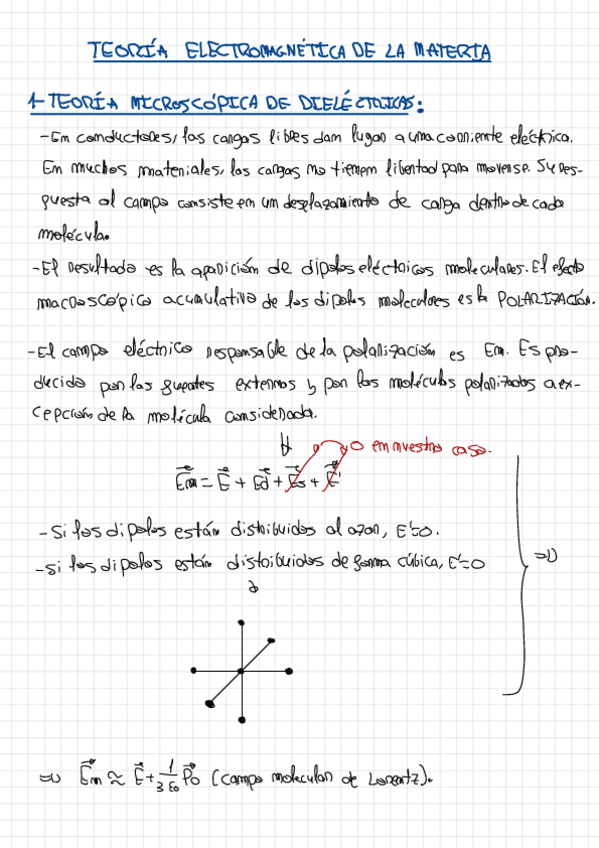 TEORÍA ELECTROMAGNÉTICA DE LA MATERIA
1-TEORÍA MICROSCÓPICA DE DIELÉCTRICAS:
-En conductores, las cargas libres dan lugar a una corriente eléctrica.
En muchos materiales, las cargas no tienen libertad para moverse. Su res-
puesta al campo consiste en un desplazamiento de carga dentro de cada
molécula.
-El resultado es la aparición de dipolos eléctricos moleculares. El efecto
macroscópico acumulativo de los dipolos moleculares es la POLARIZACIÓN.
-El campo eléctrico responsable de la polarización es Em. Es pro-
ducido por las fuentes externos y por las moléculas polarizadas a ex-
cepción de la molécula considerada.
0 en nuestro caso.
Em = E + Ed + Es + E'
-Si los dipolos están distribuidos al azar, E'=0.
-Si los dipolos están distribuidos de forma cúbica, E'=0
=>
=> Em ≈ E + 1/3ε0 P0 (campo molecular de Lorentz).